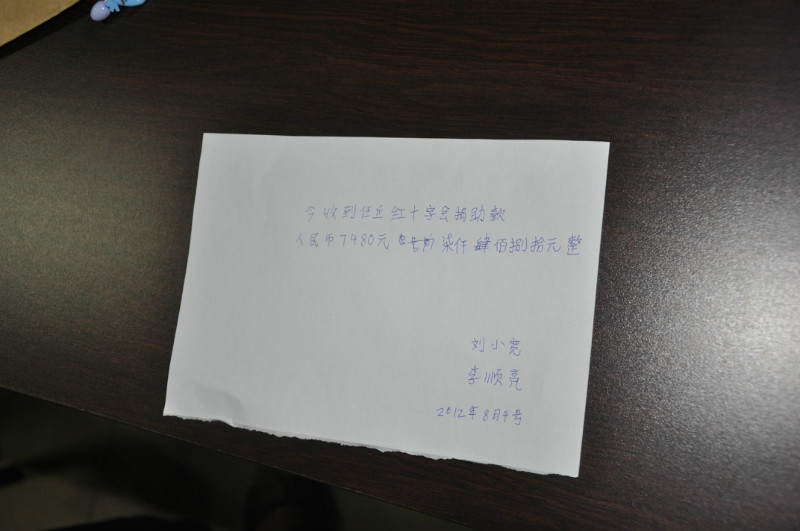 今收到任丘红十字会捐助款
人民币7480元 柒仟肆佰捌拾元整
刘小宽
李顺亮
2012年8月9号